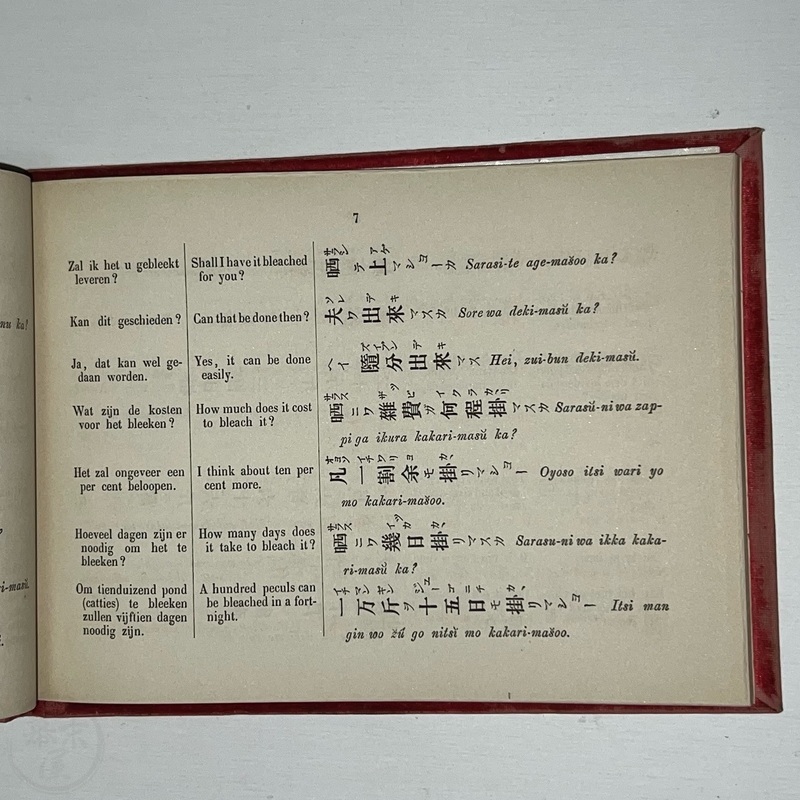 7
Zal ik het u gebleekt
leveren?
Shall I have it bleached
for you?
晒テ上マショーカ Sarasi-te age-masŏo ka?
Kan dit geschieden?
Can that be done then?
夫ワ出來マスカ Sore wa deki-masŭ ka?
Ja, dat kan wel ge-
daan worden.
Yes, it can be done
easily.
ヘイ隨分出來マス Hei, zui-bun deki-masŭ.
Wat zijn de kosten
voor het bleeken?
How much does it cost
to bleach it?
晒ニワ雜費ガ何程掛マスカ Sarasŭ-ni wa zap-
pi ga ikura kakari-masŭ ka?
Het zal ongeveer een
per cent beloopen.
I think about ten per
cent more.
凡一割余モ掛リマショー Oyoso itsi wari yo
mo kakari-masŏo.
Hoeveel dagen zijn er
noodig om het te
bleeken?
How many days does
it take to bleach it?
晒ニワ幾日掛リマスカ Sarasu-ni wa ikka kaka-
ri-masŭ ka?
Om tienduizend pond
(catties) te bleeken
zullen vijftien dagen
noodig zijn.
A hundred peculs can
be bleached in a fort-
night.
一万斤ヲ十五日モ掛リマショー Itsi man
gin wo žŭ go nitsĭ mo kakari-masŏo.
nu ka?
ri-masŭ.